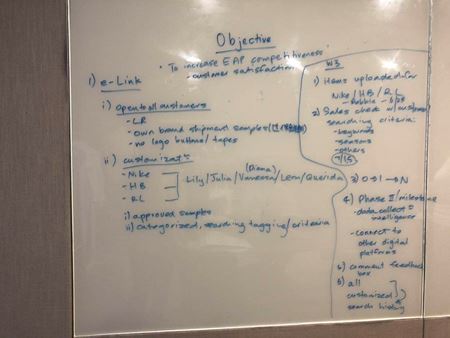 Objective
"To increase EAP competitiveness"
- customer satisfaction
1) e-Link
i) open to all customers
- LR
- own brand shipment samples
- no logo buttons/tapes
ii) customizat'n
- Nike
- HB
- RL
(Diana)
Lily/Julia/Vanessa/Leon/Querida
i) approved samples
ii) categorized, searching tagging/criteria
W3
1) Items uploaded for
Nike/HB/RL
2) Sales check w/ customer
searching criteria
- keywords
- seasons
- others
7/15
3) 0→1→N
4) Phase II/milestone
- data collect
intelligence
- connect to
other digital
platforms
comment feedback
box
all
customized
search history